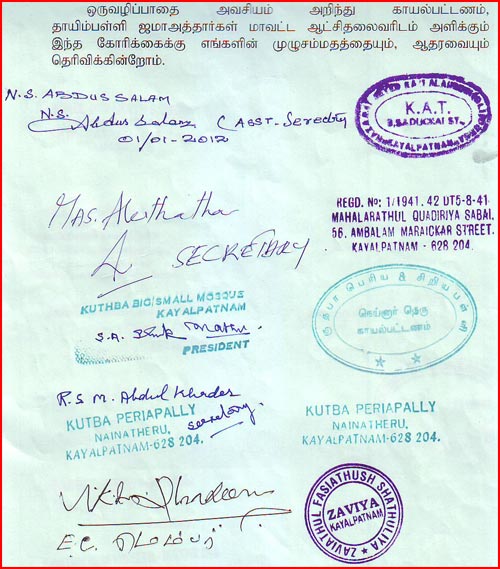 ஒருவழிப்பாதை அவசியம் அறிந்து காயல்பட்டணம்,
தாயிம்பள்ளி ஜமாஅத்தார்கள் மாவட்ட ஆட்சிதலைவரிடம் அளிக்கும்
இந்த கோரிக்கைக்கு எங்களின் முழுசம்மதத்தையும், ஆதரவையும்
தெரிவிக்கின்றோம்.
N.S. ABDUS SALAM
N.S.
Abdus Salam (ASST-
01/01-2012
K.A.T.
KAYALPATNAM
MAS.
SECRETARY
REGD. No: 1/1941. 42 DT5-8-41
MAHALARATHUL QUADIRIYA SABAI,
56. AMBALAM MARAICKAR STREET.
KAYALPATNAM - 628 204.
KUTHBA BIG/SMALL MOSQUE
KAYALPATNAM
S.A.
PRESIDENT
குத்பா பெரிய & சிறிய பள்ளி
நெய்னார் தெரு
காயல்பட்டணம்
R.S M. Abdul Khader
secretary.
KUTBA PERIAPALLY
NAINATHERU,
KAYALPATNAM-628 204.
KUTBA PERIAPALLY
NAINATHERU,
KAYALPATNAM-628 204.
E.C. மெம்பர்
ZAVIATHUL FASIATHUSH SHATHULIYA
ZAVIYA
KAYALPATNAM